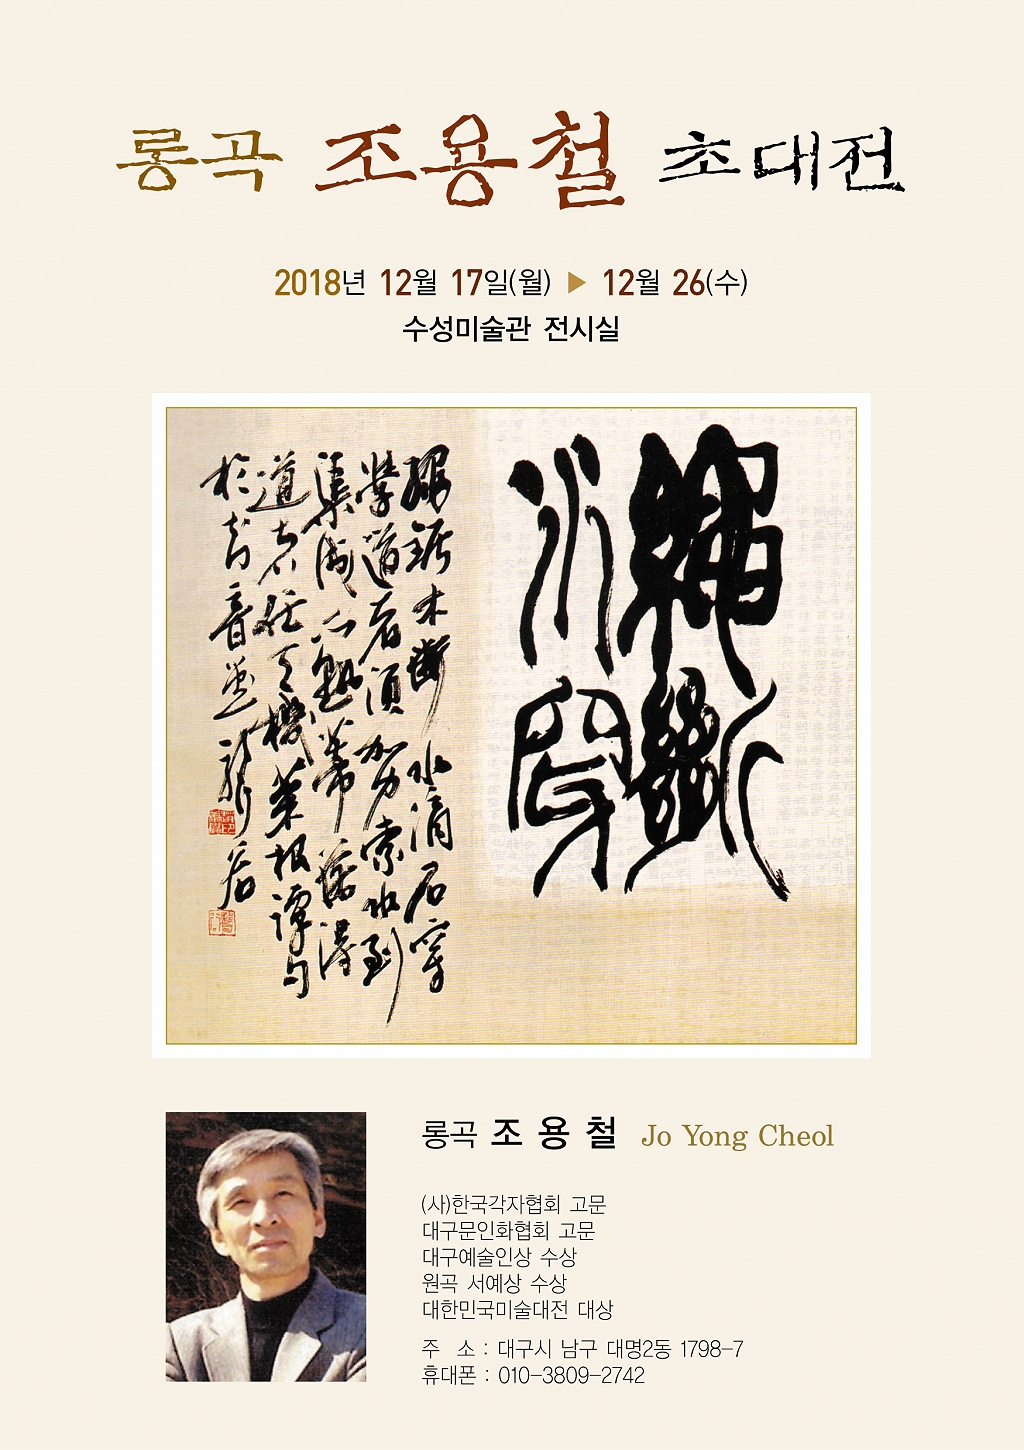 롱곡 조용철 초대전
2018년 12월 17일(월) ▶ 12월 26(수)
수성미술관 전시실
繩斷
水穿
繩鋸木斷水滴石穿
學道者須加力索水到
渠成瓜熟蒂落得
道者任天機菜根譚句
於音龍谷
롱곡 조용철 Jo Yong Cheol
(사)한국각자협회 고문
대구문인화협회 고문
대구예술인상 수상
원곡 서예상 수상
대한민국미술대전 대상
주 소 : 대구시 남구 대명2동 1798-7
휴대폰 : 010-3809-2742